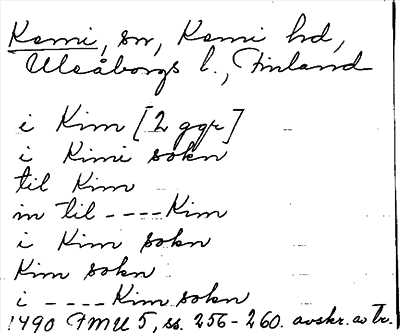 Kemi, sn, Kemi hd,
Uleåborgs l., Finland
i Kim [2 ggr]
i Kimi sokn
til Kim
in til ----Kim
i Kim sokn
Kim sokn
i ----Kim sokn
1490 FMU 5, ss. 256-260. avskr. av Tr.